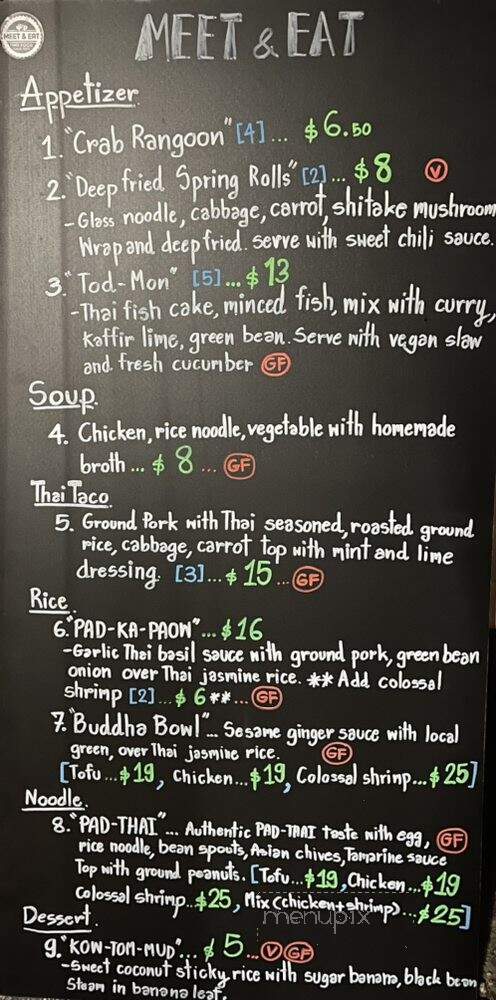 MEET & EAT
MEET & EAT
Appetizer
1. "Crab Rangoon" [4] ... $6.50
2. "Deep fried Spring Rolls" [2] ... $8 V
- Glass noodle, cabbage, carrot, shitake mushroom
Wrap and deep fried. serve with sweet chili sauce.
3. "Tod-Mon" [5] ... $13
- Thai fish cake, minced fish, mix with curry,
Kaffir lime, green bean. Serve with vegan slaw
and fresh cucumber GF
Soup
4. Chicken, rice noodle, vegetable with homemade
broth ... $8 ... GF
Thai Taco
5. Ground Pork with Thai seasoned, roasted ground
rice, cabbage, carrot top with mint and lime
dressing. [3] ... $15 ... GF
Rice
6. "PAD-KA-PAOW" ... $16
- Garlic Thai basil sauce with ground pork, green bean
onion over Thai jasmine rice. ** Add colossal
shrimp [2] ... $6** ... GF
7. "Buddha Bowl" ... Sesame ginger sauce with local
green, over Thai jasmine rice. GF
[Tofu ... $19, Chicken ... $19, Colossal shrimp ... $25]
Noodle
8. "PAD-THAI" ... Authentic PAD-THAI taste with egg, GF
rice noodle, bean spouts, Asian chives, Tamarine sauce
Top with ground peanuts. [Tofu ... $19, Chicken ... $19
Colossal shrimp ... $25, Mix (chicken+shrimp) ... $25]
menupix
Dessert
9. "KOW-TOM-MUD" ... $5 ... V GF
- Sweet coconut sticky rice with sugar banana, black bean
Steam in banana leaf.